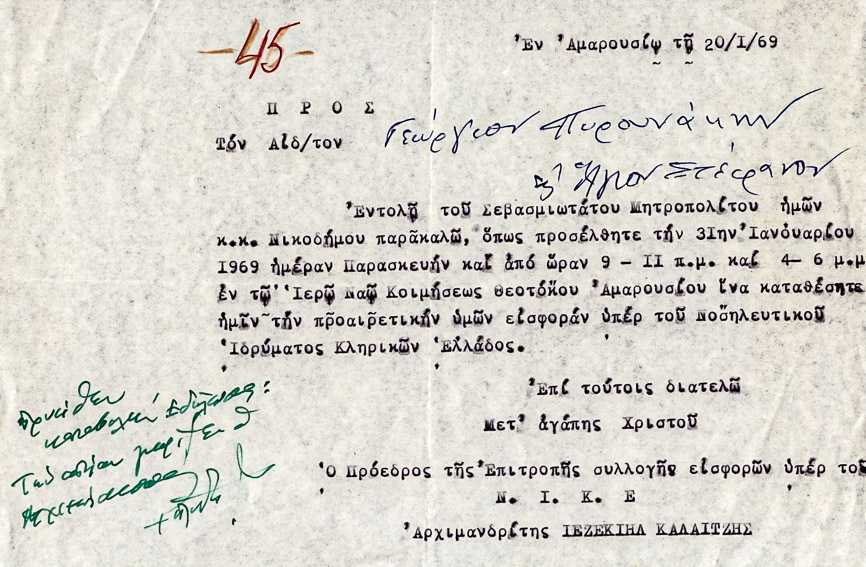 -45-
Ἐν Ἀμαρουσίῳ τῇ 20/1/69
ΠΡΟΣ
Τόν Αἰδ/τον Γεώργιον Πυρουνάκην
Ἅγιον Στέφανον
Ἐντολῇ τοῦ Σεβασμιωτάτου Μητροπολίτου ἡμῶν
κ.κ. Νικοδήμου παρακαλῶ, ὅπως προσέλθητε τήν 31ην Ἰανουαρίου
1969 ἡμέραν Παρασκευήν καί ἀπό ὥραν 9 - 11 π.μ. καί 4- 6 μ.μ
ἐν τῷ Ἱερῷ Ναῷ Κοιμήσεως Θεοτόκου Ἀμαρουσίου ἵνα καταθέσητε
ἡμῖν τήν προαιρετικήν ὑμῶν εἰσφοράν ὑπέρ τοῦ Νοσηλευτικοῦ
Ἱδρύματος Κληρικῶν Ἑλλάδος.
Ἐπί τούτοις διατελῶ
Μετ' ἀγάπης Χριστοῦ
Ὁ Πρόεδρος τῆς Ἐπιτροπῆς συλλογῆς εἰσφορῶν ὑπέρ τοῦ
Ν. Ι. Κ. Ε
Ἀρχιμανδρίτης ΙΕΖΕΚΙΗΛ ΚΑΛΑΙΤΖΗΣ